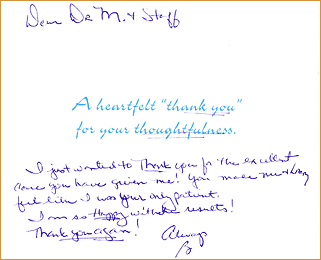 Dear Dr M. + Staff
A heartfelt "thank you"
for your thoughtfulness.
I just wanted to Thank you for the excellent
care you have given me! You make me
feel like I was your only patient.
I am so Happy with the results!
Thank you again!
Always